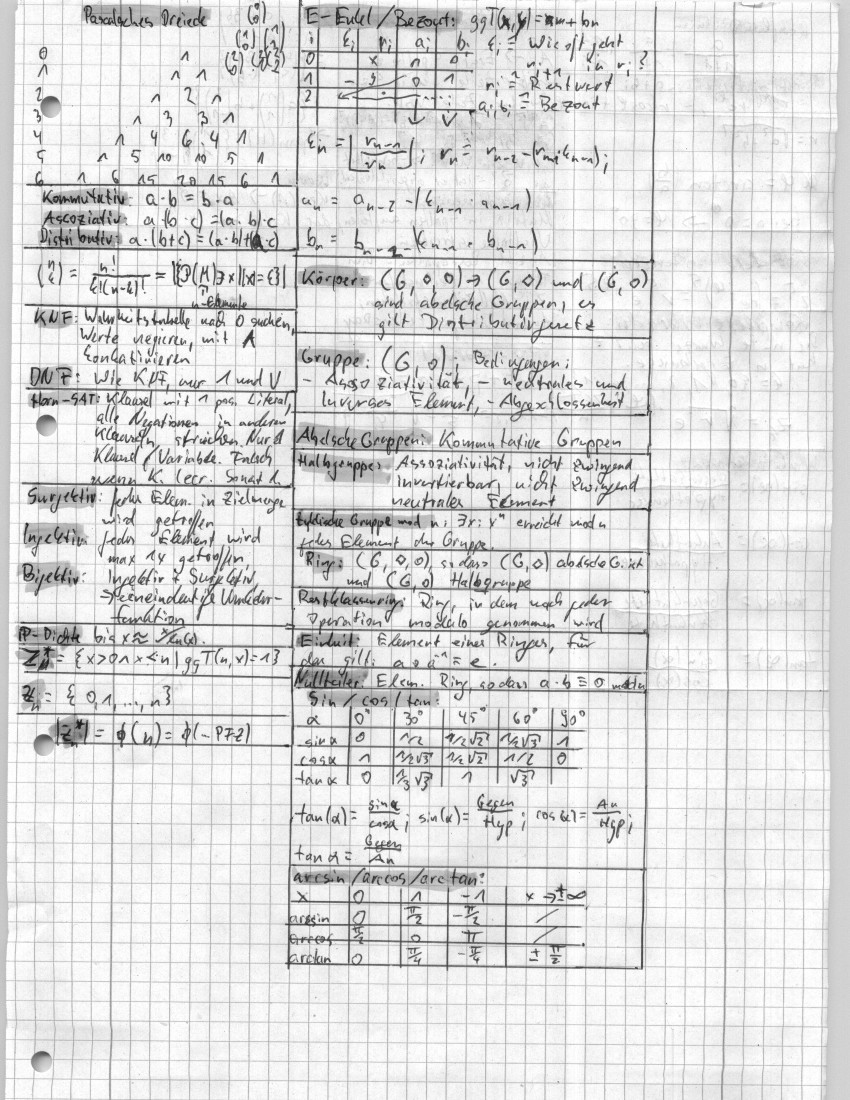 Pascalsches Dreieck
0 1
1 1 1
2 1 2 1
3 1 3 3 1
4 1 4 6 4 1
5 1 5 10 10 5 1
6 1 6 15 20 15 6 1
Kommutativ: a·b = b·a
Assoziativ: a·(b·c) = (a·b)·c
Distributiv: a·(b+c) = (a·b)+(a·c)
(n k) = n!/k!(n-k)! = |{P(M)∋x||x|=k}|
n-Elemente
KNF: Wahrheitstabelle nach 0 suchen,
Werte negieren, mit ∧
konkatinieren
DNF: Wie KNF, nur 1 und V
Horn-SAT: Klausel mit 1 pos. Literal,
alle Negationen in anderen
Klauseln streichen. Nur 1
Klausel/Variable. Falsch
wenn K. leer. Sonst
Surjektiv: jedes Elem. in Zielmenge
wird getroffen
Injektiv: jedes Element wird
max 1x getroffen
Bijektiv: Injektiv + Surjektiv,
→ eineindeutige
funktion
P-Dichte bis x ≈ x/ln(x).
Z*n = {x>0 ∧ x<n | ggT(n,x)=1}
Zn = {0,1,...,n}
|Z*n| = φ(n) = φ(-PFZ)
E-Eukl/Bezout: ggT(x,y) = am + bn
i ki ri ai bi ki ≙ Wie oft geht
0 x 1 0 ri+1 in ri?
1 - y 0 1 ri ≙ Restwert
2 ai, bi ≙ Bezout
kn = ⌊rn-1/rn⌋; rn = rn-2 - (rn-1·kn-1);
an = an-2 - (kn-1 · an-1)
bn = bn-2 - (kn-1 · bn-1)
Körper: (G, ◇, o) → (G, ◇) und (G, o)
sind abelsche Gruppen, es
gilt Distributivgesetz
Gruppe: (G, o); Bedingungen:
- Assoziativität, - neutrales und
Inverses Element, - Abgeschlossenheit
Abelsche Gruppen: Kommutative Gruppen
Halbgruppe: Assoziativität, nicht zwingend
invertierbar, nicht zwingend
neutrales Element
Zyklische Gruppe mod n: ∃x: xⁿ erreicht mod n
jedes Element der Gruppe.
Ring: (G, ◇, o), sodass (G, ◇) abelsche G. ist
und (G, o) Halbgruppe
Restklassenring: Ring, in dem nach jeder
Operation modulo genommen wird
Einheit: Element eines Ringes, für
das gilt: a o a⁻¹ = e.
Nullteiler: Elem. Ring, sodass a·b ≡ 0 mod n
Sin/cos/tan:
α 0° 30° 45° 60° 90°
sin α 0 1/2 1/2√2 1/2√3 1
cos α 1 1/2√3 1/2√2 1/2 0
tan α 0 1/3√3 1 √3
tan(α) = sin α/cos α; sin(α) = Gegen/Hyp; cos(α) = An/Hyp;
tan α = Gegen/An
arcsin/arccos/arctan:
x 0 1 -1 x → ±∞
arcsin 0 π/2 -π/2 /
arccos π/2 0 π /
arctan 0 π/4 -π/4 ± π/2